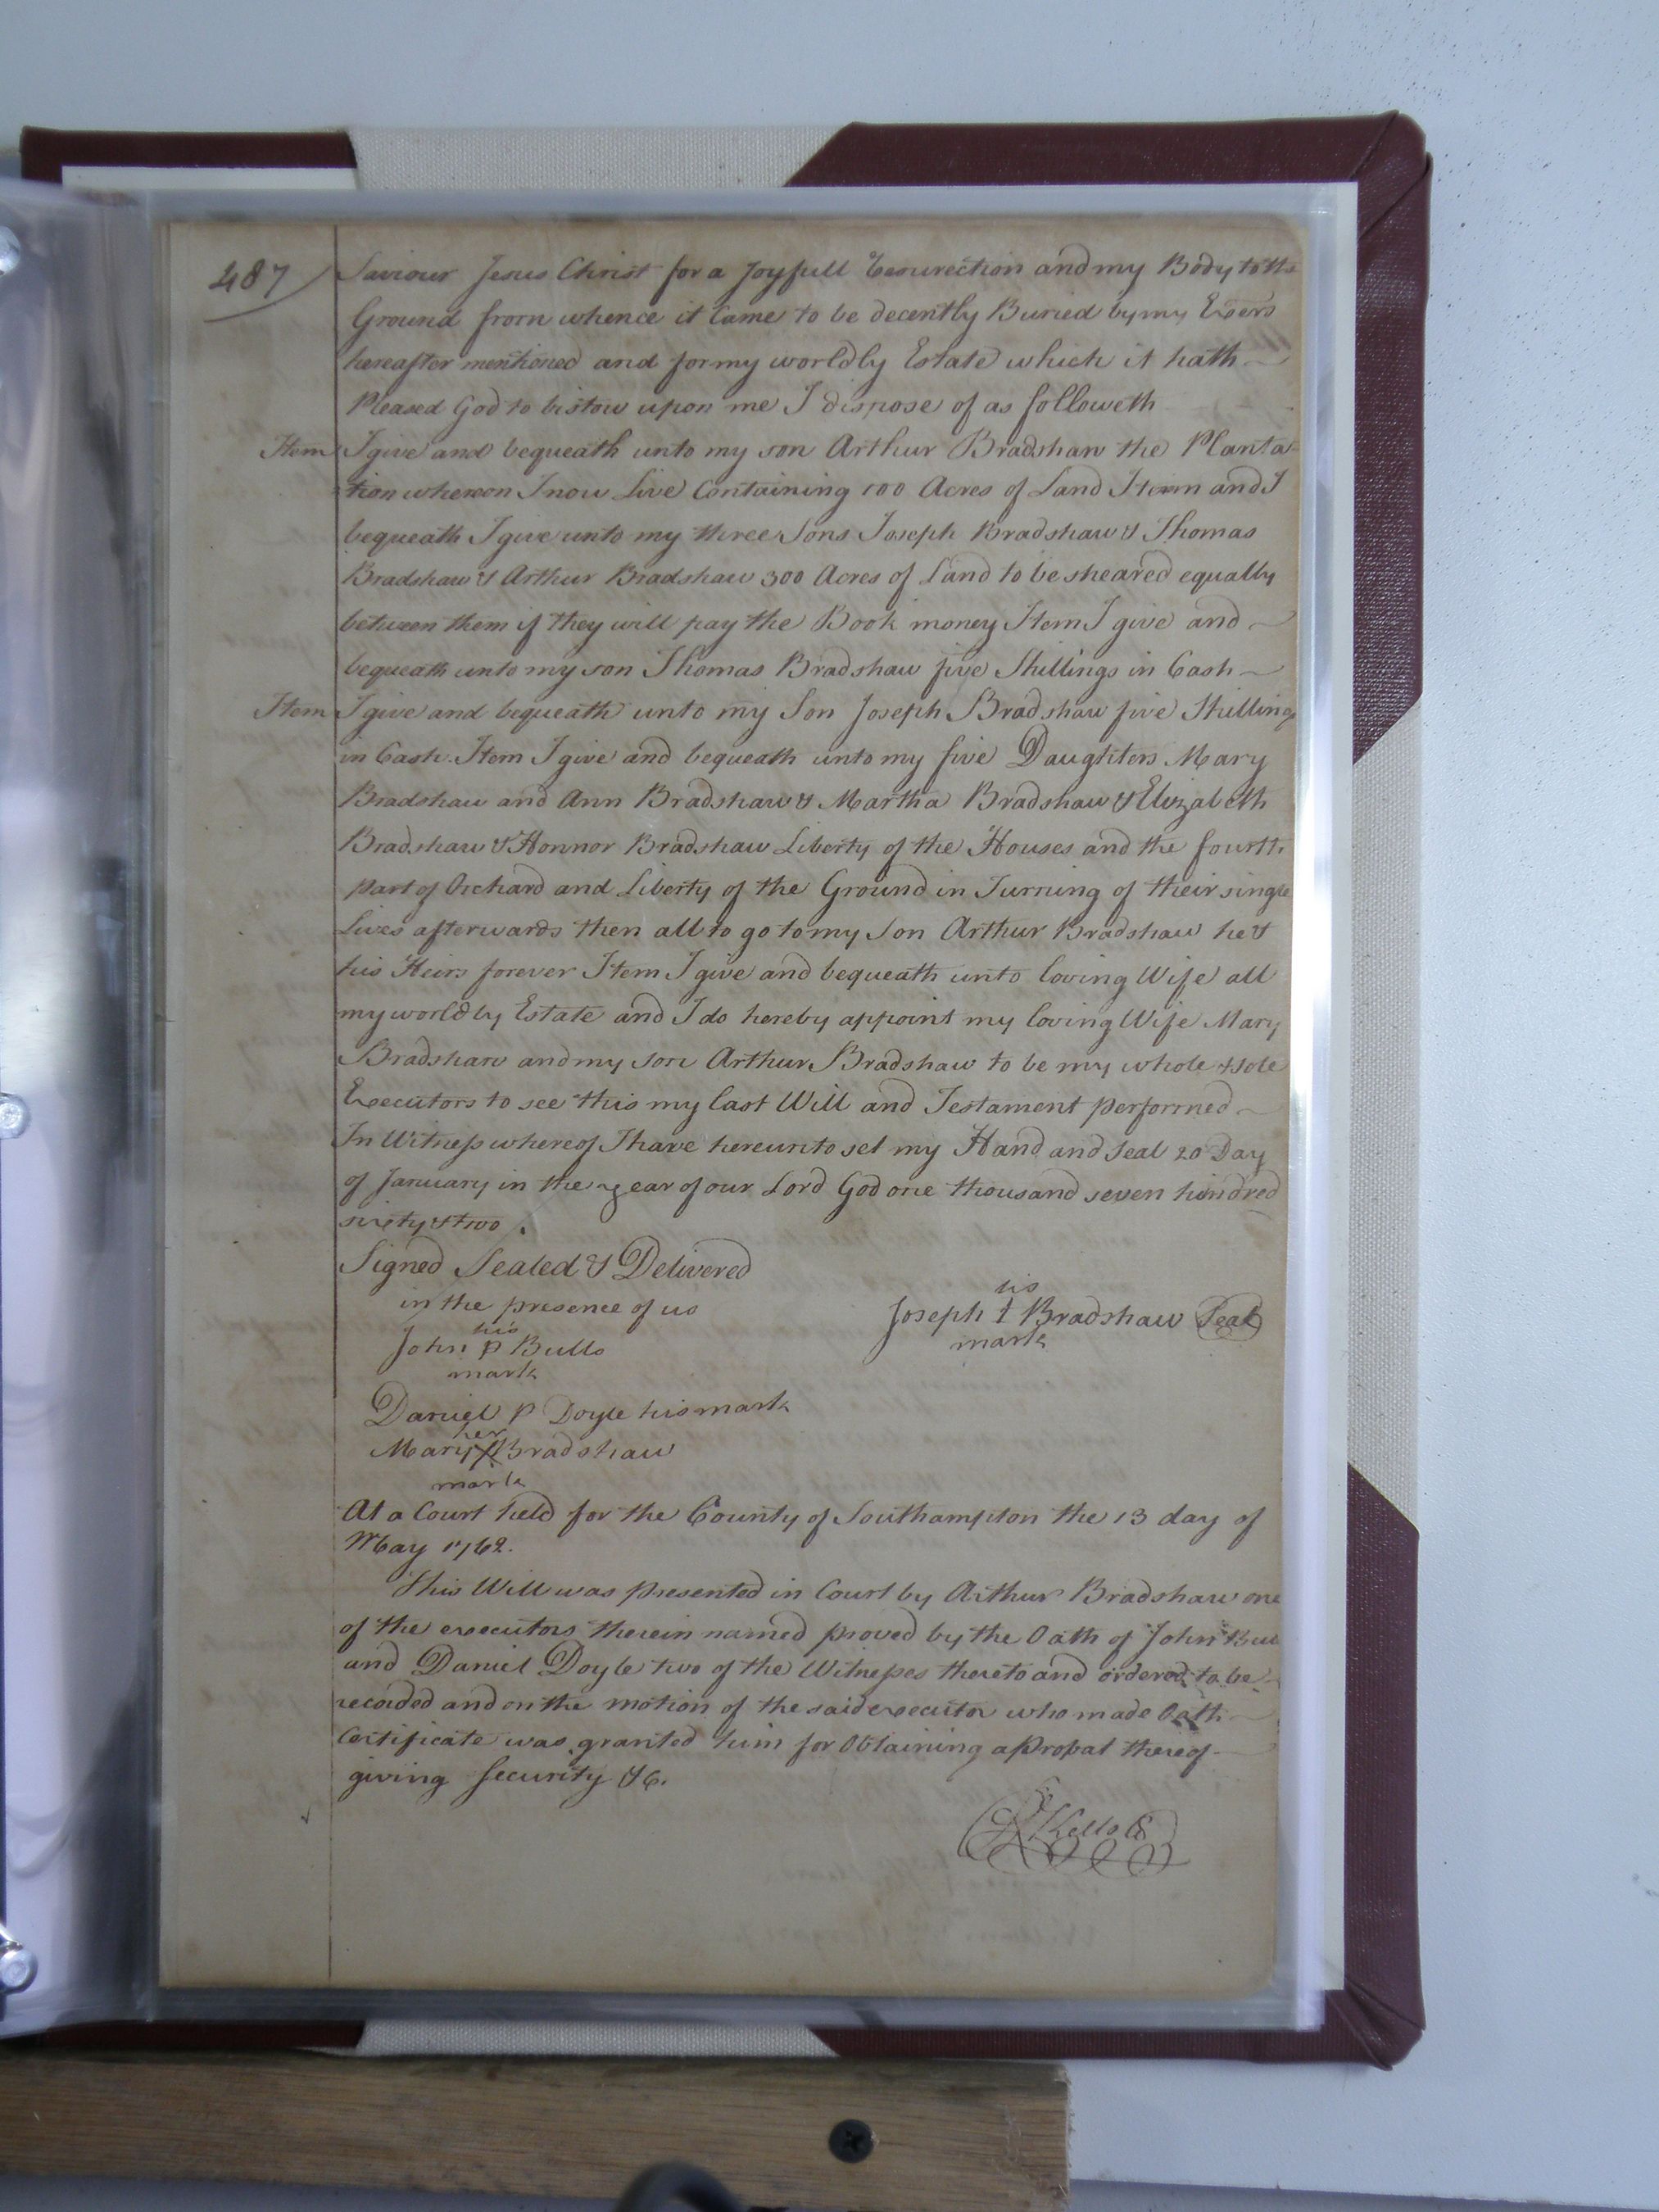 487
Saviour Jesus Christ for a Joyfull Resurection and my Body to the
Ground from whence it Came to be decently Buried by my Exers
hereafter mentioned and for my worldly Estate which it hath
Pleased God to bistow upon me I dispose of as followeth
Item I give and bequeath unto my son Arthur Bradshaw the Planta
tion whereon I now Live Containing 100 Acres of Land Item and I
bequeath I give unto my three Sons Joseph Bradshaw & Thomas
Bradshaw & Arthur Bradshaw 300 Acres of Land to be sheared equally
between them if they will pay the Book money Item I give and
bequeath unto my son Thomas Bradshaw five Shillings in Cash
Item I give and bequeath unto my Son Joseph Bradshaw five Shillings
in Cash. Item I give and bequeath unto my five Daughters Mary
Bradshaw and Ann Bradshaw & Martha Bradshaw & Elizabeth
Bradshaw & Honnor Bradshaw Liberty of the Houses and the fourth
part of Orchard and Liberty of the Ground in Turning of their single
Lives afterwards then all to go to my Son Arthur Bradshaw he &
his Heirs forever Item I give and bequeath unto loving Wife all
my worldly Estate and I do hereby appoint my loving Wife Mary
Bradshaw and my son Arthur Bradshaw to be my whole & sole
Executors to see this my last Will and Testament performed
In Witness whereof I have hereunto set my Hand and Seal 20 Day
of January in the year of our Lord God one thousand seven hundred
sixty & two.
Signed Sealed & Delivered
in the presence of us
his
Joseph Bradshaw Seal
mark
his
John P Bulls
mark
Daniel P Doyle his mark
her
Mary Bradshaw
mark
At a Court held for the County of Southampton the 13 day of
May 1762.
This Will was presented in Court by Arthur Bradshaw one
of the executors therein named proved by the Oath of John
and Daniel Doyle two of the Witnesses thereto and ordered to be
recorded and on the motion of the said executor who made Oath
Certificate was granted him for Obtaining a Probat thereof
giving Security &c.
Kello